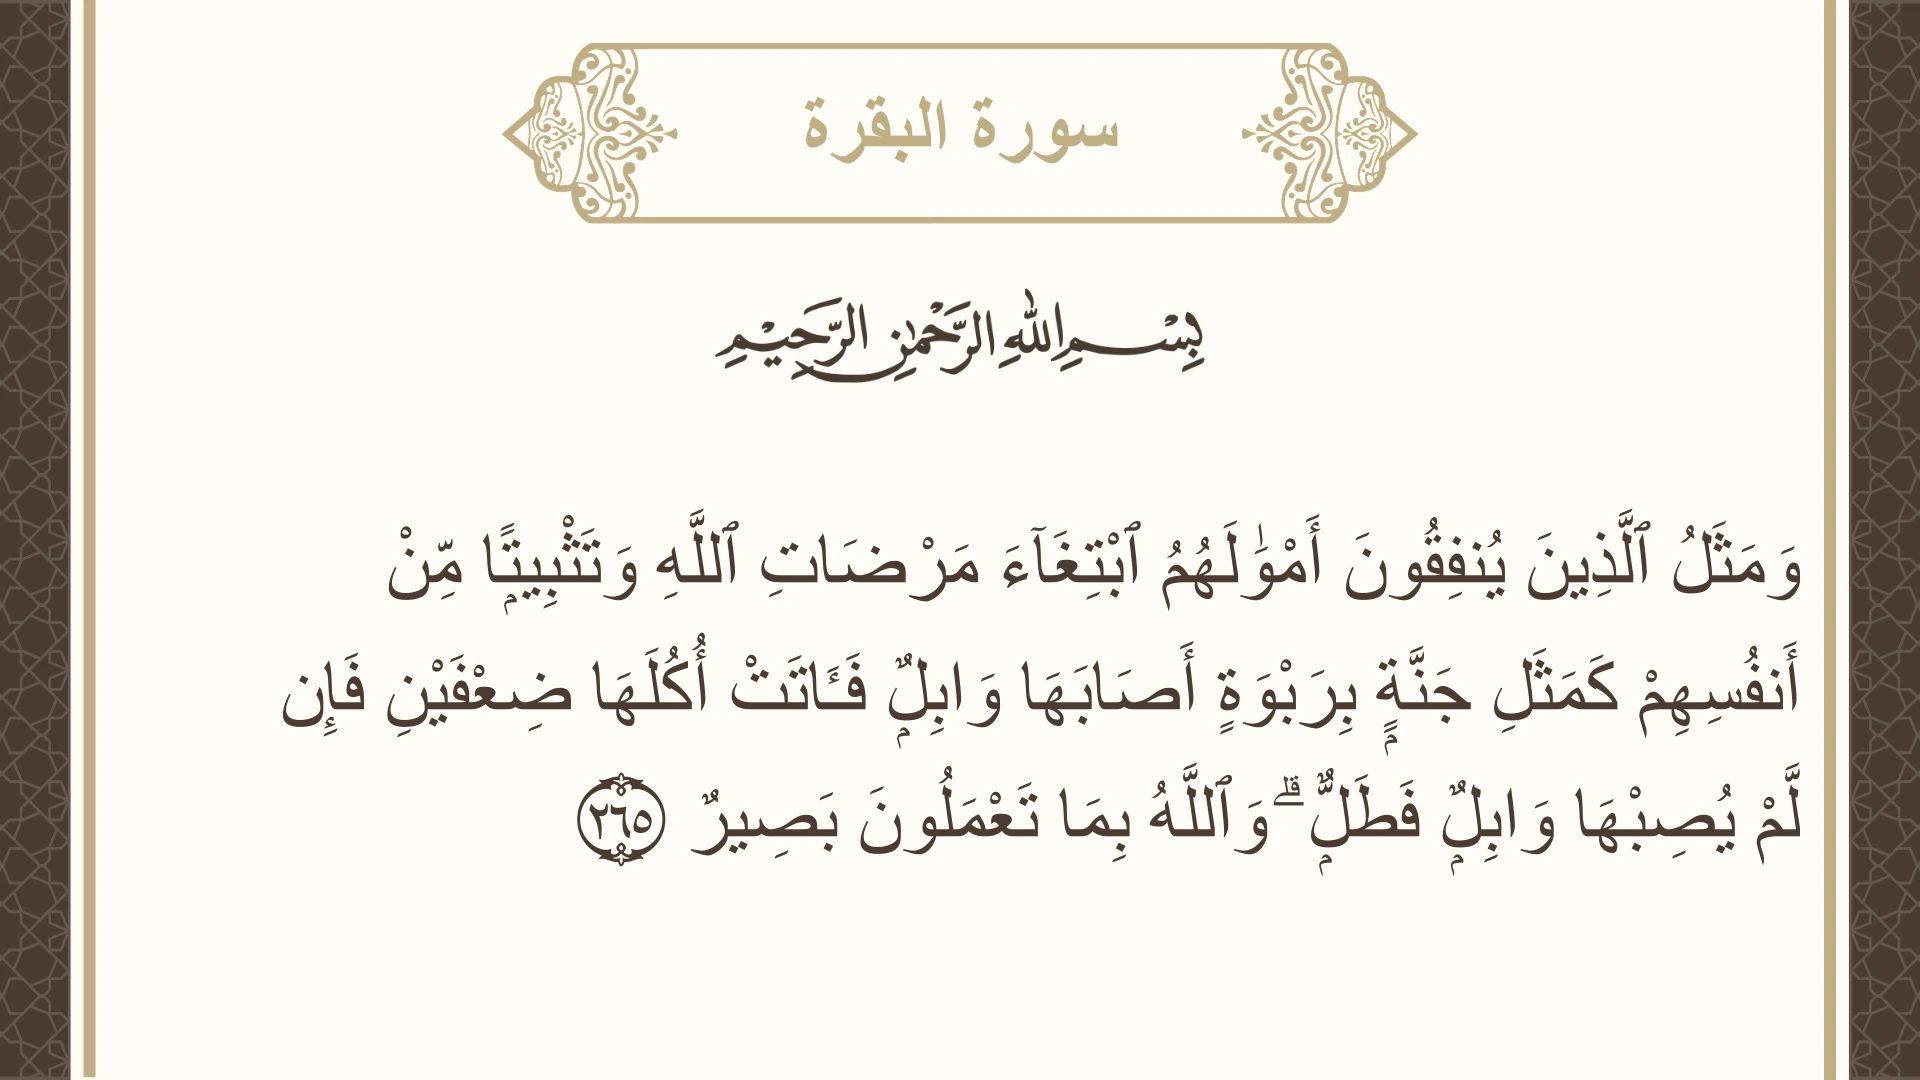 سورة البقرة
بِسْمِ اللهِ الرَّحْمٰنِ الرَّحِيْمِ
وَمَثَلُ ٱلَّذِينَ يُنفِقُونَ أَمْوَٰلَهُمُ ٱبْتِغَآءَ مَرْضَاتِ ٱللَّهِ وَتَثْبِيتًۭا مِّنْ
أَنفُسِهِمْ كَمَثَلِ جَنَّةٍۭ بِرَبْوَةٍ أَصَابَهَا وَابِلٌۭ فَـَٔاتَتْ أُكُلَهَا ضِعْفَيْنِ فَإِن
لَّمْ يُصِبْهَا وَابِلٌۭ فَطَلٌّۭ ۗ وَٱللَّهُ بِمَا تَعْمَلُونَ بَصِيرٌ ٢٦٥